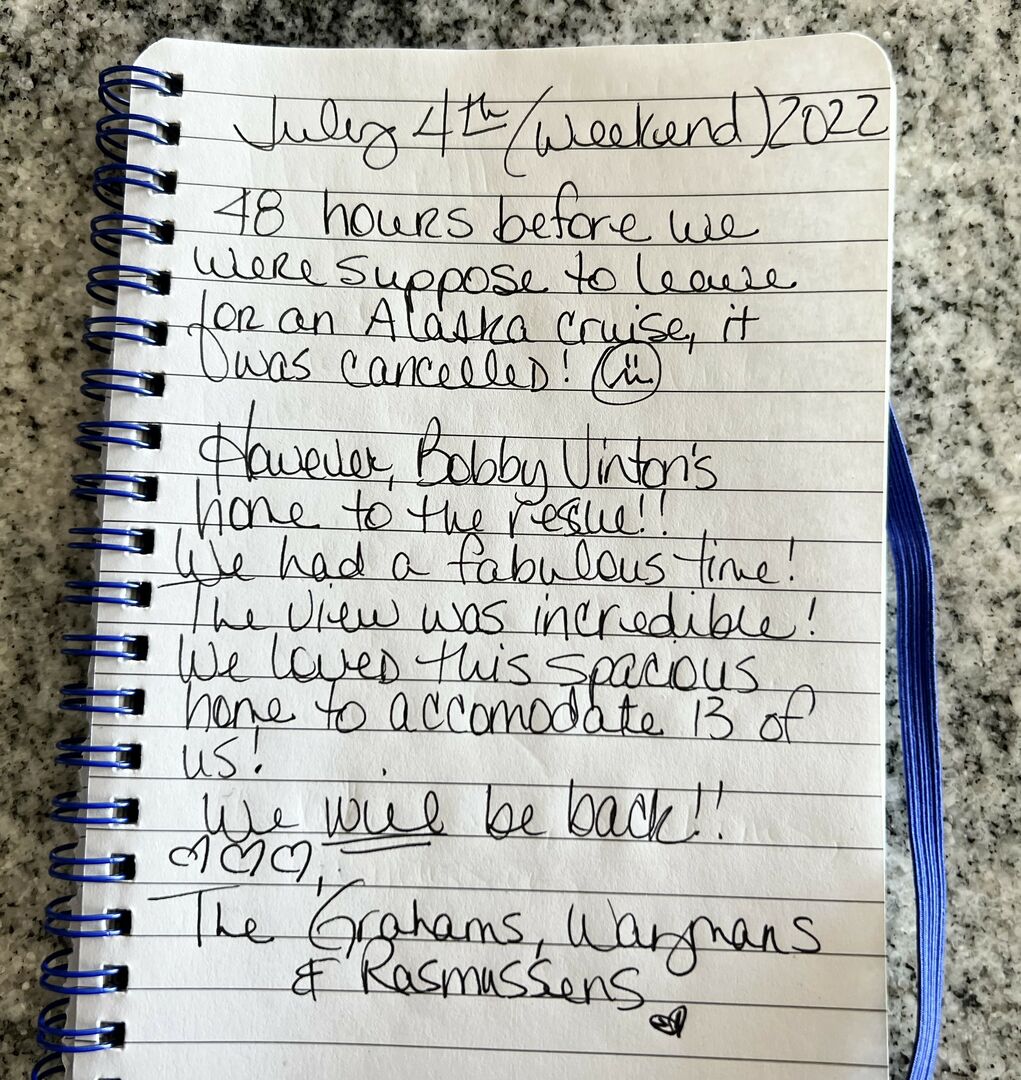 July 4th (weekend) 2022
48 hours before we
were suppose to leave
for an Alaska cruise, it
was cancelled!
However, Bobby Vinton's
home to the resue!!
We had a fabulous time!
The view was incredible!
We loved this spacious
home to accomodate 13 of
us!
We will be back!!
♡♡♡,
The Grahams, Waymans
& Rasmussens